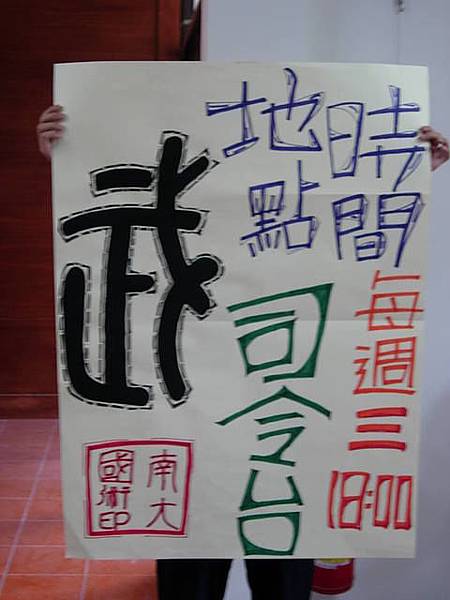 時間
每週三
18:00
地點
司令台
武
南大
國術印